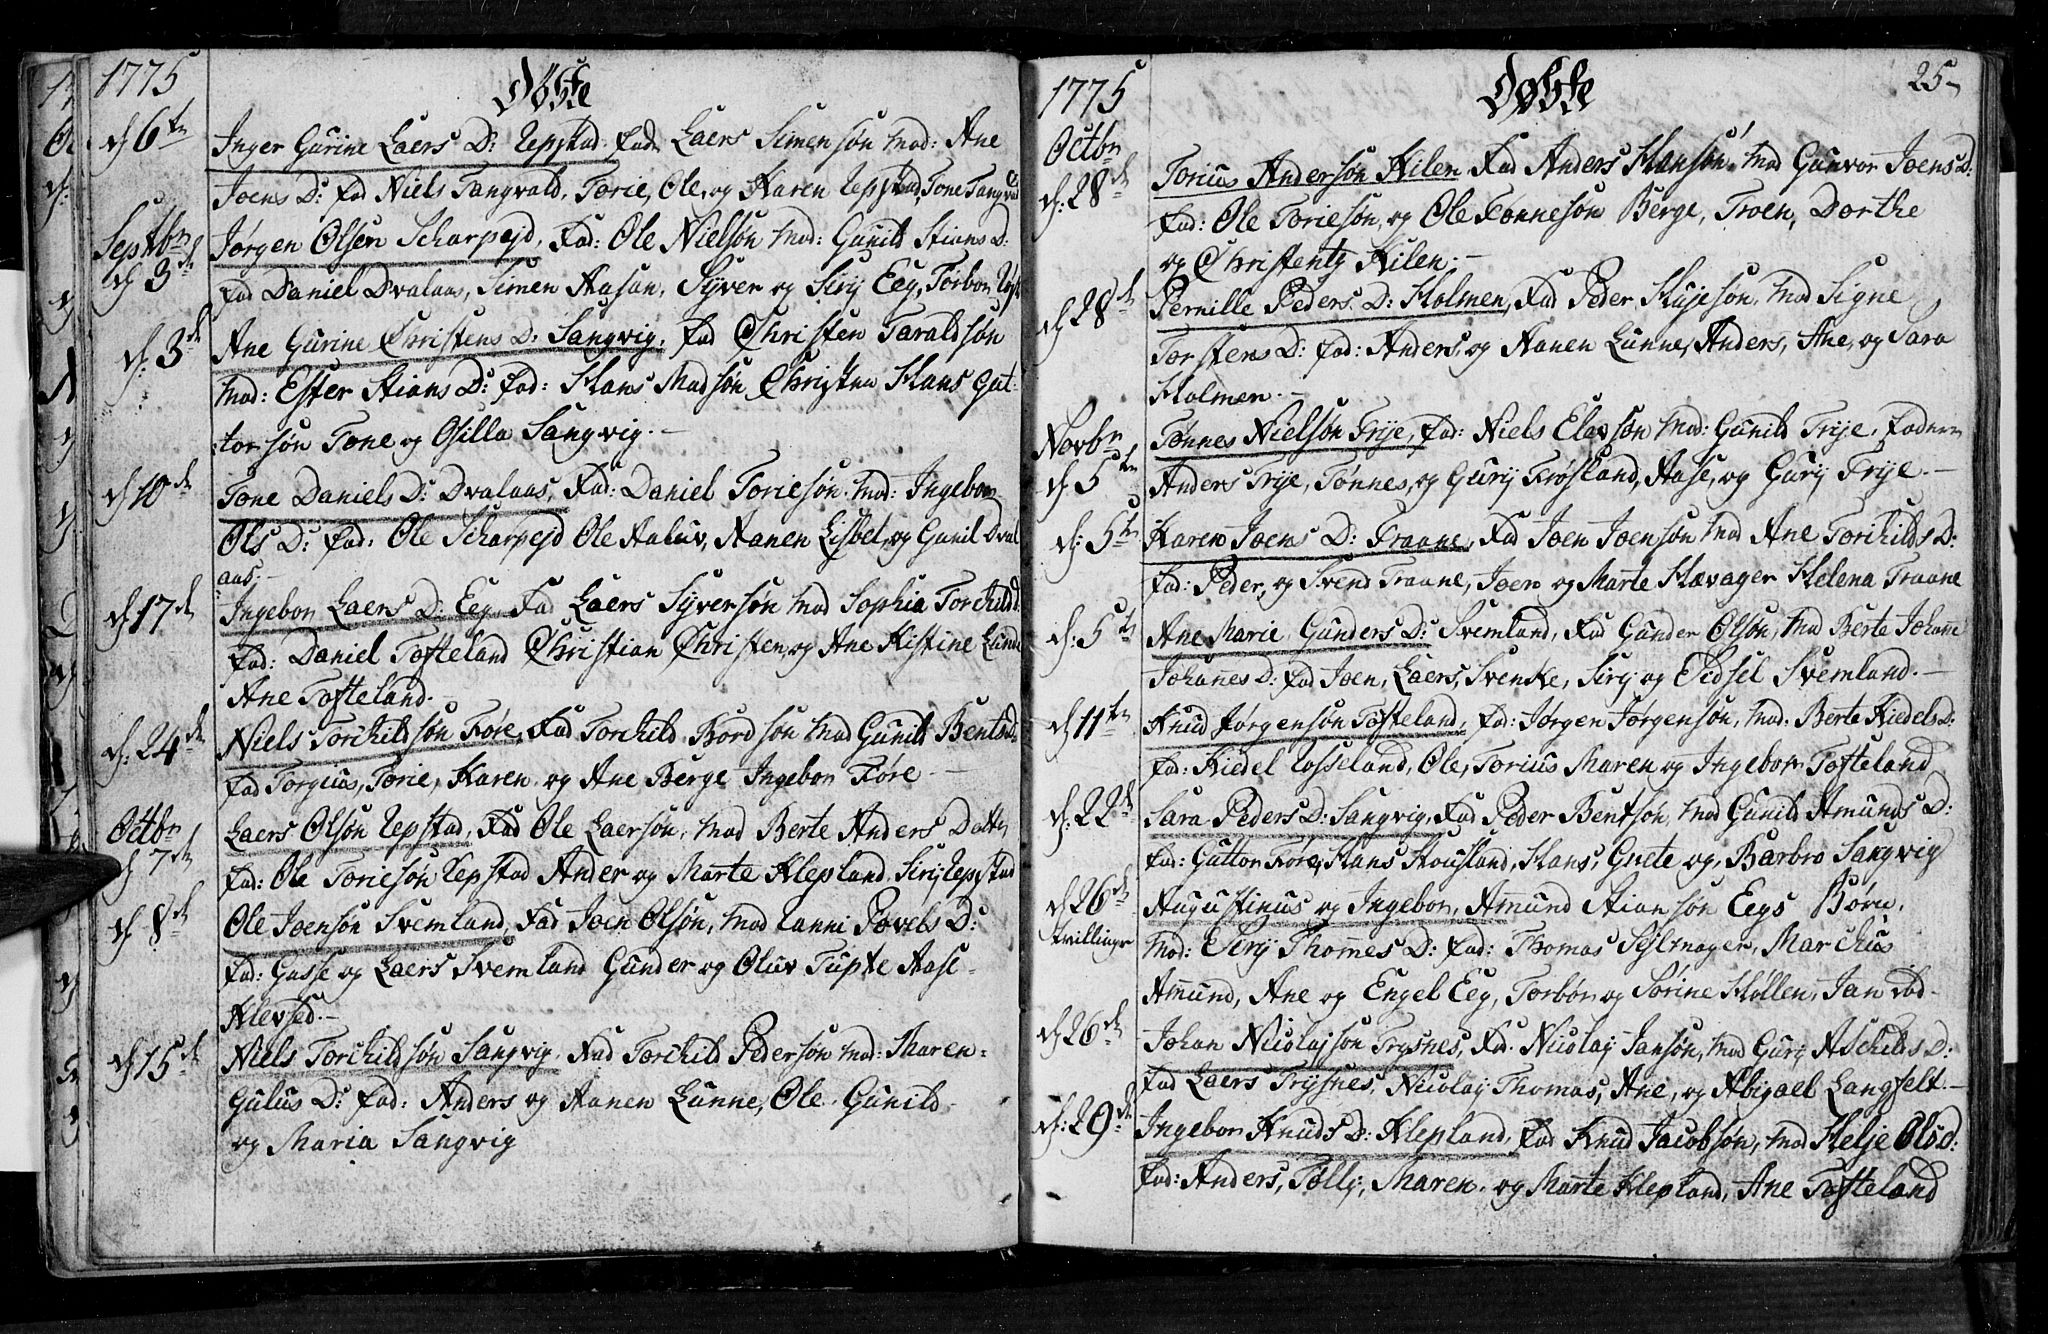 1775
Døbte
d 6te Inger Gurine Laers D: Repstad. Fad: Laers Simensøn Mod: Ane
Joens D: Fad Niels Tangvald, Torie, Ole, og Karen Repstad, Tone Tangvald
Septbr d 3de Jørgen Olsen Scharpejd, Fad: Ole Nielsøn Mod: Gunild Stians D:
Fad Daniel Dvalaas, Simen Aasan, Syver og Sirj Eeg, Torbor
d: 3de Ane Gurine Christens D: Sangvig. Fad Christen Taraldsøn
Mod: Ester Stians D: Fad: Hans Madsøn Christen Hans Gut-
torsøn Tone og Osilla Sangvig.-
d 10de Tone Daniels D: Dvalaas, Fad: Daniel Toriesøn. Mod: Ingebor
Ols D: Fad: Ole Scharpejd Ole Aaluv, Aanen Lisbet, og Gunil Dval
aas.-
d 17de Ingebor Laers D: Eeg Fad Laers Syversøn Mod Sophia Torchilds D
Fad: Daniel Tofteland Christian Christen, og Ane Kistine Lunde
Ane Tofteland.-
d: 24de Niels Torchildsøn Føre, Fad Torchild Bordsøn Mod Gunild Bents D:
Fad Torgius, Torie, Karen og Ane Berge Ingebor Føre.-
Octbr d 7de Laers Olsøn Repstad, Fad Ole Laersøn, Mod Berte Anders Datter
Fad: Ole Toriesøn Repstad Ander og Marte Klepland Sirj Repstad
d 8de Ole Joensøn Svemland, Fad Joen Olsøn, Mod Tanni Povels D:
Fad: Gasse og Laers Svemland Gunder og Oluv Tupte Aase
Klevsed.-
d 15de Niels Torchildsøn Sangvig. Fad Torchild Pedersøn Mod: Maren
Gulus D: Fad: Anders og Aanen Lunne, Ole Gunild
og Maria Sangvig
1775
Døbte
25
Octbr d: 28de Torius Andersøn Kilen Fad Anders Hansøn. Mod Gunvor Joens D:
Fad: Ole Toriesøn, og Ole Tønnesøn Berge, Troen, Dorthe
og Christentz Kilen.-
d 28de Pernille Peders D: Holmen, Fad Peder Hujesøn, Mod Signe
Torstens D: Fad: Anders, og Aanen Lunne, Anders, Ane, og Sara
Holmen.-
Novbr d 5te Tønnes Nielsøn Trije, Fad: Niels Elevsøn Mod: Gunild Trije, Faderne
Anders Trije, Tønnes, og Gurij Frøsland, Aase, og Gurij Trije.-
d: 5te Karen Joens D: Traane, Fad Joen Joensøn Mod Ane Torchilds D:
Fad: Peder, og Svend Traane, Joen og Marte Hævager Helena Traane
d: 5te Ane Marie Gunders D: Svemland, Fad Gunder Olsøn, Mod Berte Johanne
Johannes D. Fad Joen, Laers, Svenke, Sirj og Sidsel Svemland.-
d 11te Knud Jørgensøn Tofteland, Fad: Jørgen Jørgensøn, Mod: Berte Kiedels D:
Fad: Kiedel Rosseland, Ole, Torius Maren og Ingebor Tofteland
d: 22de Sara Peders D: Sangvig, Fad Peder Bentsøn, Mod Gunild Amunds D:
Fad: Guttor Føre, Hans Housland, Hans, Grete og, Barbro Sangvig
d 26de tvillinger Augustinus og Ingebor, Amund Stiansøn Eegs Børn.
Mod: Sirj Thommes D: Fad: Thomas Sejlmager, Marchus
Amund, Ane og Engel Eeg, Torbør og Sørine Høllen, Jan ibd.
d 26de Johan Nicolajsøn Trysnes, Fad. Nicolaj Jansøn, Mod Gurj Aschilds D:
Fad Laers Trysnes, Nicolaj Thomas, Ane, og Abigael Langfelt.-
d: 29de Ingebor Knuds D: Klepland, Fad Knud Jacobsøn, Mod Helje Ols D:
Fad: Anders, Tollj, Maren og Marte Klepland, Ane Tofteland